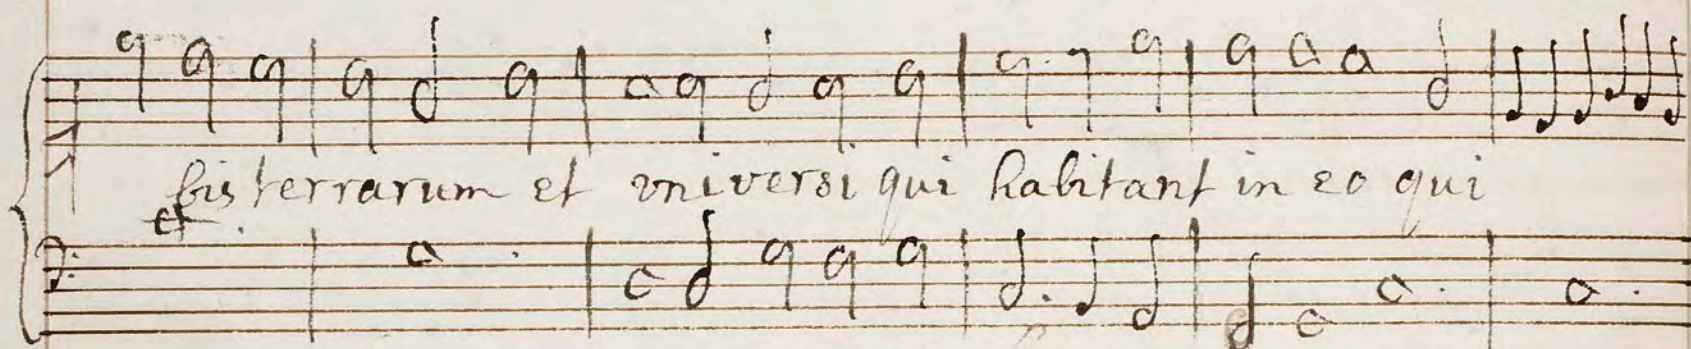 bis terrarum et vniversi qui habitant in eo qui
et